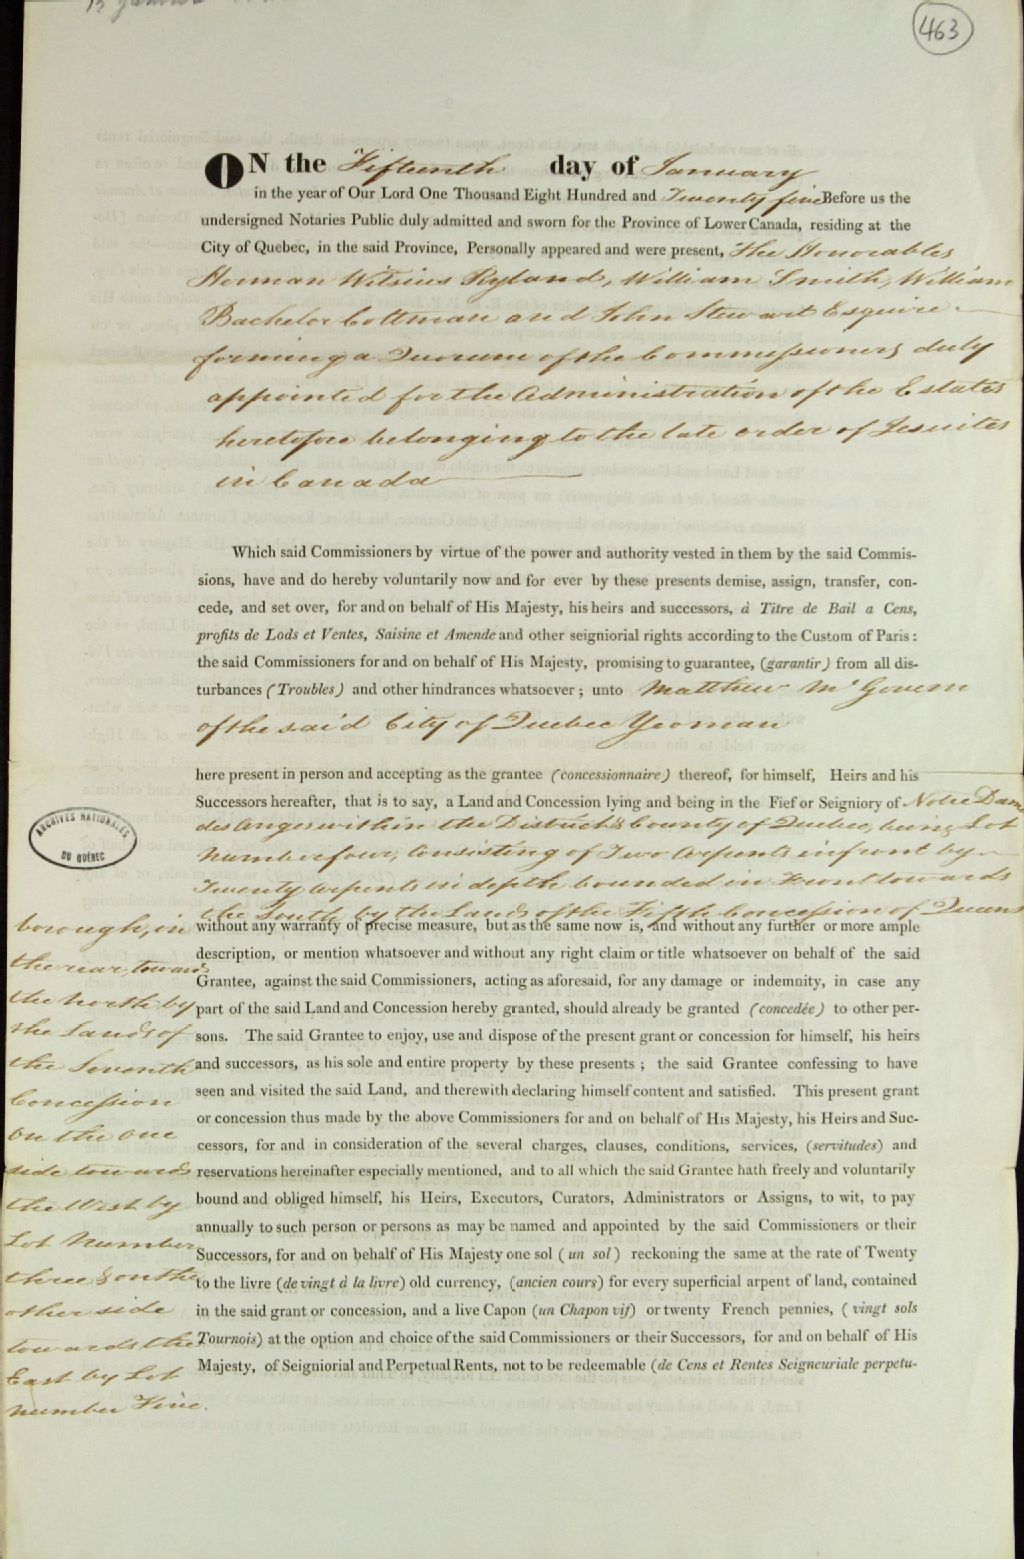 463
ON the Fifteenth day of January
in the year of Our Lord One Thousand Eight Hundred and Twenty five Before us the
undersigned Notaries Public duly admitted and sworn for the Province of Lower Canada, residing at the
City of Quebec, in the said Province, Personally appeared and were present, The Honorables
Herman Witsius Ryland, William Smith, William
Bachelor Coltman and John Stewart Esquire
forming a Quorum of the Commissioners duly
appointed for the Administration of the Estates
heretofore belonging to the late order of Jesuites
in Canada
Which said Commissioners by virtue of the power and authority vested in them by the said Commis-
sions, have and do hereby voluntarily now and for ever by these presents demise, assign, transfer, con-
cede, and set over, for and on behalf of His Majesty, his heirs and successors, à Titre de Bail a Cens,
profits de Lods et Ventes, Saisine et Amende and other seigniorial rights according to the Custom of Paris :
the said Commissioners for and on behalf of His Majesty, promising to guarantee, (garantir) from all dis-
turbances (Troubles) and other hindrances whatsoever ; unto Matthew McGovern
of the said City of Quebec Yeoman
here present in person and accepting as the grantee (concessionnaire) thereof, for himself, Heirs and his
Successors hereafter, that is to say, a Land and Concession lying and being in the Fief or Seigniory of Notre Dame
des Anges within the District & County of Quebec, being Lot
Number four, Consisting of Two Arpents in front by
Twenty Arpents in depth bounded in Front towards
the South by the Lands of the Fifth Concession of Queens
borough, in
the rear, towards
the North by
the Lands of
the Seventh
Concession
on the one
side towards
the West by
Lot Number
three & on the
other side
towards the
East by Lot
number Five.
without any warranty of precise measure, but as the same now is, and without any further or more ample
description, or mention whatsoever and without any right claim or title whatsoever on behalf of the said
Grantee, against the said Commissioners, acting as aforesaid, for any damage or indemnity, in case any
part of the said Land and Concession hereby granted, should already be granted (concedée) to other per-
sons. The said Grantee to enjoy, use and dispose of the present grant or concession for himself, his heirs
and successors, as his sole and entire property by these presents ; the said Grantee confessing to have
seen and visited the said Land, and therewith declaring himself content and satisfied. This present grant
or concession thus made by the above Commissioners for and on behalf of His Majesty, his Heirs and Suc-
cessors, for and in consideration of the several charges, clauses, conditions, services, (servitudes) and
reservations hereinafter especially mentioned, and to all which the said Grantee hath freely and voluntarily
bound and obliged himself, his Heirs, Executors, Curators, Administrators or Assigns, to wit, to pay
annually to such person or persons as may be named and appointed by the said Commissioners or their
Successors, for and on behalf of His Majesty one sol (un sol) reckoning the same at the rate of Twenty
to the livre (de vingt à la livre) old currency, (ancien cours) for every superficial arpent of land, contained
in the said grant or concession, and a live Capon (un Chapon vif) or twenty French pennies, (vingt sols
Tournois) at the option and choice of the said Commissioners or their Successors, for and on behalf of His
Majesty, of Seigniorial and Perpetual Rents, not to be redeemable (de Cens et Rentes Seigneuriale perpetu-
ARCHIVES NATIONALES
DU QUÉBEC